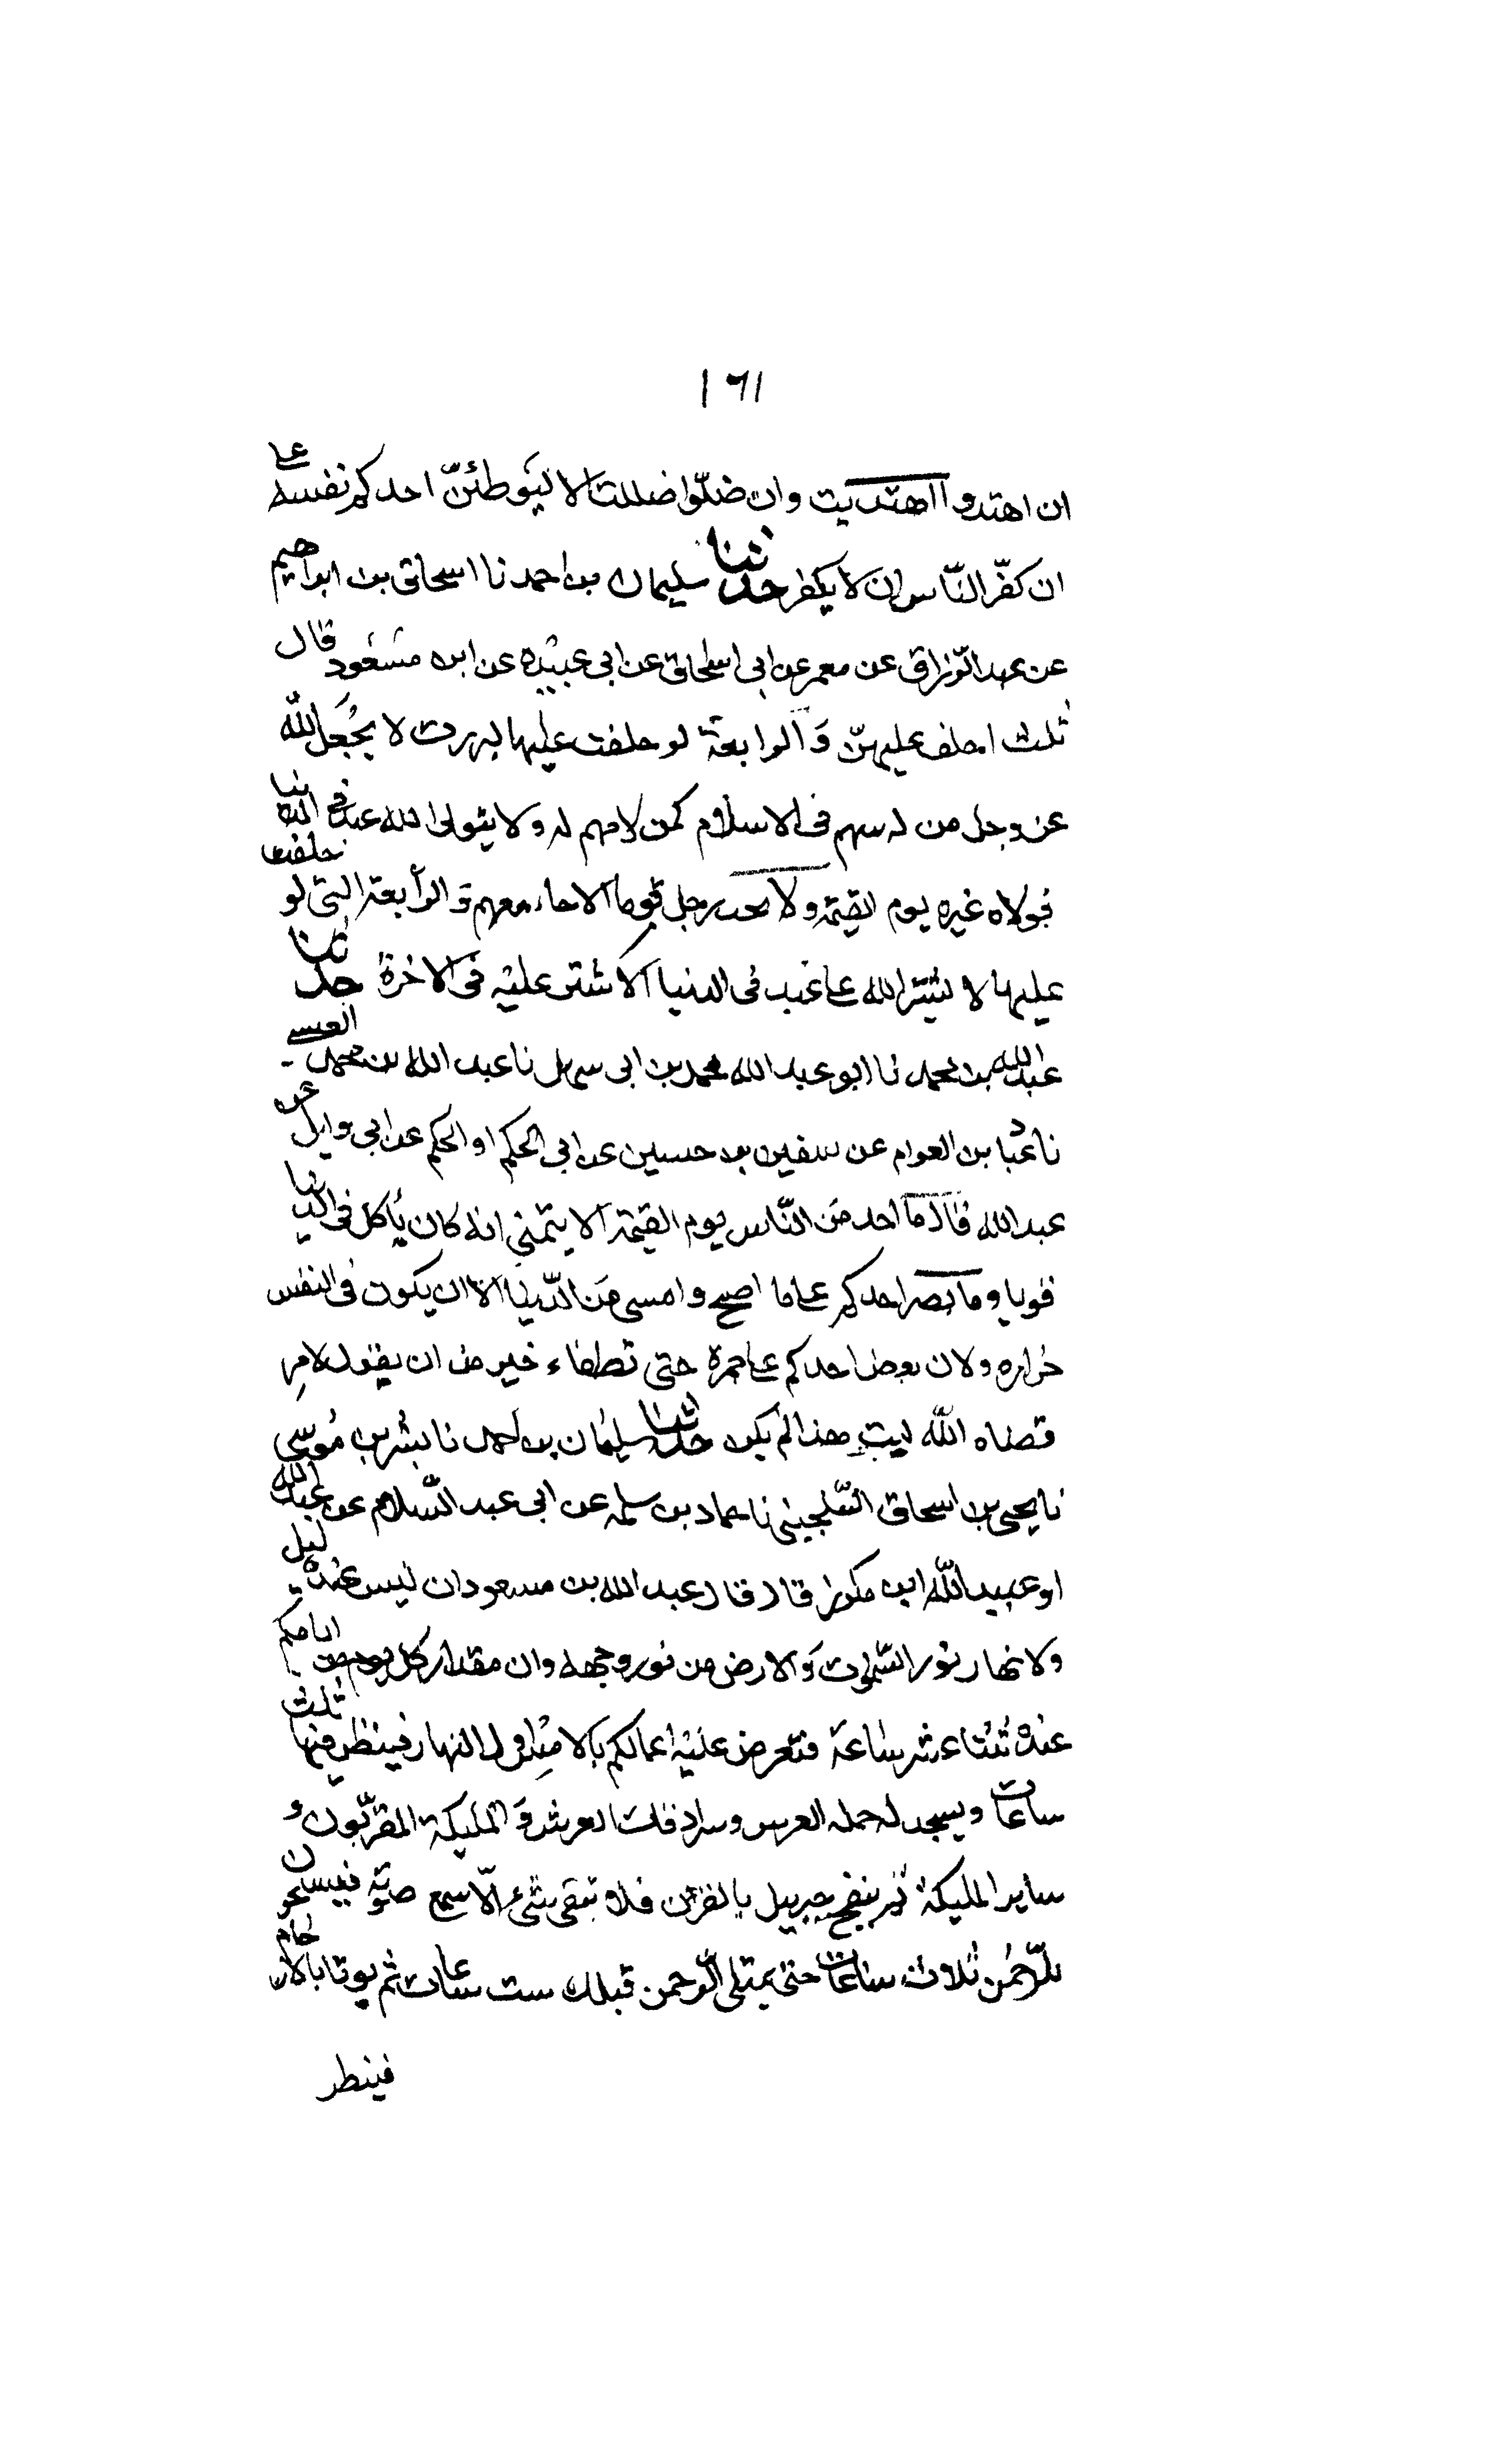 ١٦١
ان اهتدوا اهتديت وان ضلّوا ضللت الا ليوطئنّ احدكم نفسه على
ان كفّر النّاس ان لا يكفر حدثنا سليمان بن احمد نا اسحاق بن ابراهيم
عن عبد الرّزاق عن معمر عن ابي اسحاق عن ابي عبيده عن ابن مسعود قال
ثلث احلف عليهنّ وَالرابعة لو حلفت عليها لبررت لا يجُعَل اللّه
عز وجل من له سهم فى الاسلام كمن لا سهم له ولا يتولى الله عبد فى الدنيا
فولاه غيره يوم القيمة ولا يحب رجل قوما الا جاء معهم وَالرابعة التى لو حلفت
عليها لا يستر الله على عبد فى الدنيا الا ستر عليه فى الاخرة حدثنا
عبد الله بن محمد نا ابو عبد الله محمد بن ابى سهل نا عبد الله بن محمد العبسى
نا عباد بن العوام عن سفين بن حسين عن ابي الحكم او الحكم عن ابي وايل عن
عبد الله قال ما احد من النّاس يوم القيمة الا يتمنى انه كان يأكل فى الدنيا
قوبا وما يضر احدكم على ما اصبح وامسى من الدّنيا الا ان يكون فى النفس
حزازه ولان يعض احدكم على جمرة حتى تطفاء خير من ان يقول لامرِ
قضاه اللّه ليت هذا لم يكن حدثنا سليمان بن احمد نا بشر بن مُوسى
نا يحيى بن اسحاق السّلجينى نا حماد بن سلمه عن ابى عبد السّلام عن عبد الله
او عبيد اللّه ابن مكرز قال قال عبد الله بن مسعود ان ليس عنده ليل
ولا نهار نور السّموت وَالارض من نور وجهه وان مقدار كل يوم من ايامكم
عنده ثنتا عشر ساعة فتعرض عليه اعمالكم بالامسِ اول النهار فينظر فيها ثلث
ساعات ويسجد له حمله العرس وسرادقات العرش وَالمليكة المقرّبون و
ساير المليكة ثم ينفح جبريل بالقران فلا تبقى شىء الّا سمع صوته فيسبحون
للرّحمٰن ثلاث ساعات حتى يمتلى الرّحمن فتلك ست ساعات ثم يوتا بالارحام
فينطر